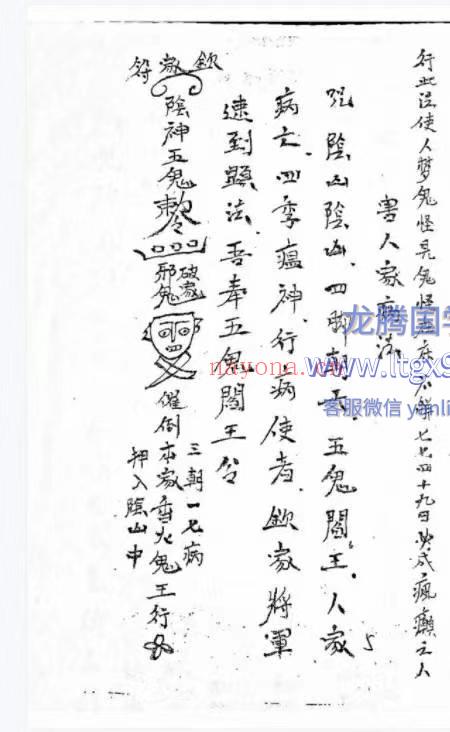 行此法使人梦鬼怪見鬼怪七七四十九日必成瘋癲之人
害人家病法
咒 陰山陰山 四脚朝天 五鬼閻王 人家
病亡 四季瘟神 行病使者 欽家將軍
速到顕法 吾奉五鬼閻王令
三朝一七病
押入陰山中
陰神五鬼 敕令 破家 邪鬼 催倒本家香火鬼王行
符
龙腾国学
nayona.
www.ltgx9
客服微信 yinli
5